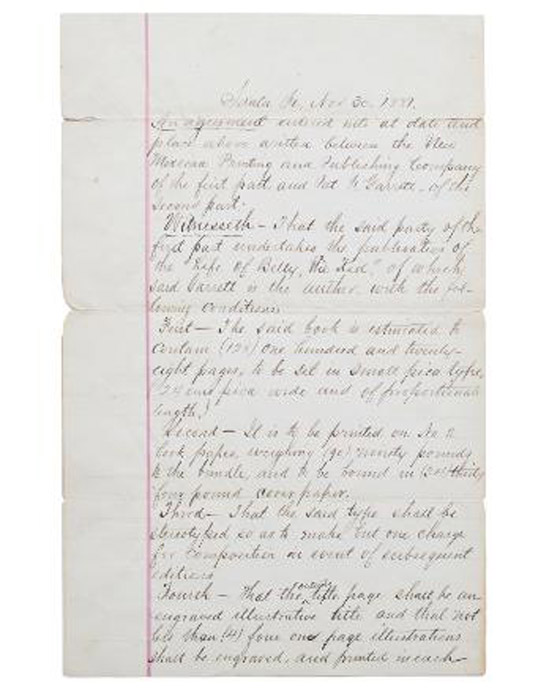 Santa Fe, Nov 30, 1881.
An agreement entered into at date and
place above written between the New
Mexican Printing and Publishing Company
of the first part and Pat F. Garrett of the
second part.
Witnesseth – That the said party of the
first part undertakes the publication of
the "Life of Billy, the Kid," of which
said Garrett is the author with the fol-
lowing conditions
First – The said book is estimated to
contain (128) one hundred and twenty-
eight pages, to be set in small pica type,
(24 ems pica wide and of proportionate
length.)
Second – It is to be printed on No
book paper, weighing (90) ninety pounds
to the bundle, and to be bound in thirty
four pound cover paper.
Third – That the said type shall be
stereotyped so as to make but one charge
for composition in event of subsequent
editions
Fourth – That the outside title page shall be an
engraved illustrative title and that not
less than (4) four one page illustrations
shall be engraved, and printed in each